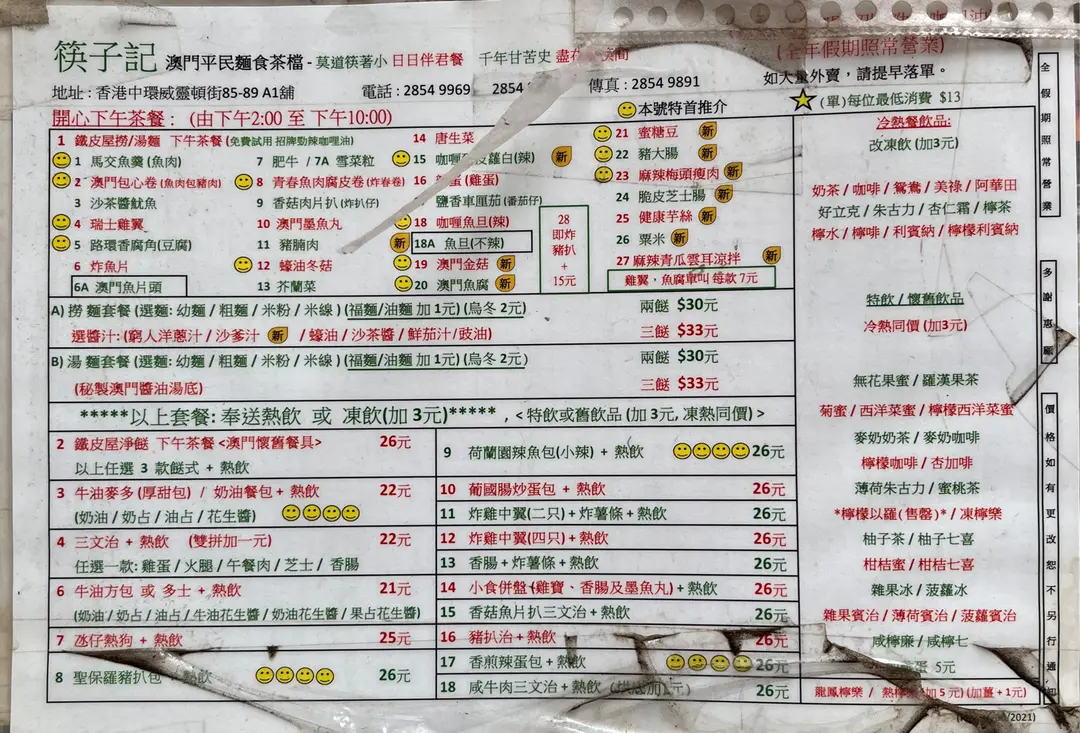 筷子記 澳門平民麵食茶檔 - 莫道筷著小 日日伴君餐 千年甘苦史
(全年假期照常營業)
地址 : 香港中環威靈頓街85-89 A1舖 電話 : 2854 9969 2854 傳真 : 2854 9891
如大量外賣，請提早落單。
本號特首推介
(單)每位最低消費 $13
開心下午茶餐 : (由下午2:00 至 下午10:00)
1 鐵皮屋撈/湯麵 下午茶餐(免費試用 招牌勁辣咖喱油)
1 馬交魚羹 (魚肉)
2 澳門包心卷 (魚肉包豬肉)
3 沙茶醬魷魚
4 瑞士雞翼
5 路環香腐角(豆腐)
6 炸魚片
6A 澳門魚片頭
7 肥牛 / 7A 雪菜粒
8 青春魚肉腐皮卷 (炸春卷)
9 香菇肉片扒 (炸扒仔)
10 澳門墨魚丸
11 豬腩肉
12 蠔油冬菇
13 芥蘭菜
14 唐生菜
15 咖喱 蘿白(辣) 新
16 蛋 (雞蛋)
鹽香車厘茄 (番茄仔)
18 咖喱魚旦(辣)
新 18A 魚旦(不辣)
19 澳門金菇 新
20 澳門魚腐 新
28
即炸
豬扒
+
15元
21 蜜糖豆 新
22 豬大腸 新
23 麻辣梅頭瘦肉 新
24 脆皮芝士腸 新
25 健康芋絲 新
26 粟米 新
27 麻辣青瓜雲耳涼拌 新
雞翼，魚腐單叫 每款 7元
A) 撈 麵套餐 (選麵: 幼麵 / 粗麵 / 米粉 / 米線 ) (福麵/油麵 加 1元) (烏冬 2元) 兩餸 $30元
選醬汁: (窮人洋蔥汁 / 沙爹汁 新 / 蠔油 / 沙茶醬 / 鮮茄汁/豉油) 三餸 $33元
B) 湯 麵套餐 (選麵: 幼麵 / 粗麵 / 米粉 / 米線 ) (福麵/油麵 加 1元) (烏冬 2元) 兩餸 $30元
(秘製澳門醬油湯底) 三餸 $33元
*****以上套餐: 奉送熱飲 或 凍飲(加 3元)***** , < 特飲或舊飲品 (加 3元, 凍熱同價) >
2 鐵皮屋淨餸 下午茶餐 <澳門懷舊餐具> 26元
以上任選 3 款餸式 + 熱飲
3 牛油麥多 (厚甜包) / 奶油餐包 + 熱飲 22元
(奶油 / 奶占 / 油占 / 花生醬)
4 三文治 + 熱飲 (雙拼加一元) 22元
任選一款: 雞蛋 / 火腿 / 午餐肉 / 芝士 / 香腸
6 牛油方包 或 多士 + 熱飲 21元
(奶油 / 奶占 / 油占 / 牛油花生醬 / 奶油花生醬 / 果占花生醬)
7 氹仔熱狗 + 熱飲 25元
8 聖保羅豬扒包 + 熱飲 26元
9 荷蘭園辣魚包(小辣) + 熱飲 26元
10 葡國腸炒蛋包 + 熱飲 26元
11 炸雞中翼(二只) + 炸薯條 + 熱飲 26元
12 炸雞中翼(四只) + 熱飲 26元
13 香腸 + 炸薯條 + 熱飲 26元
14 小食併盤(雞寶、香腸及墨魚丸) + 熱飲 26元
15 香菇魚片扒三文治 + 熱飲 26元
16 豬扒治 + 熱飲 26元
17 香煎辣蛋包 + 熱飲 26元
18 咸牛肉三文治 + 熱飲 26元
冷熱餐飲品:
改凍飲 (加3元)
奶茶 / 咖啡 / 鴛鴦 / 美祿 / 阿華田
好立克 / 朱古力 / 杏仁霜 / 檸茶
檸水 / 檸啡 / 利賓納 / 檸檬利賓納
特飲 / 懷舊飲品
冷熱同價 (加3元)
無花果蜜 / 羅漢果茶
菊蜜 / 西洋菜蜜 / 檸檬西洋菜蜜
麥奶奶茶 / 麥奶咖啡
檸檬咖啡 / 杏加啡
薄荷朱古力 / 蜜桃茶
*檸檬以羅(售罄)* / 凍檸樂
柚子茶 / 柚子七喜
柑桔蜜 / 柑桔七喜
雜果冰 / 菠蘿冰
雜果賓治 / 薄荷賓治 / 菠蘿賓治
咸檸廉 / 咸檸七
蛋 5元
龍鳳檸樂 / 熱檸 (加 5 元) (加薑 + 1元)
2021)
全假期照常營業
多謝惠顧
價格如有更改恕不另行通知